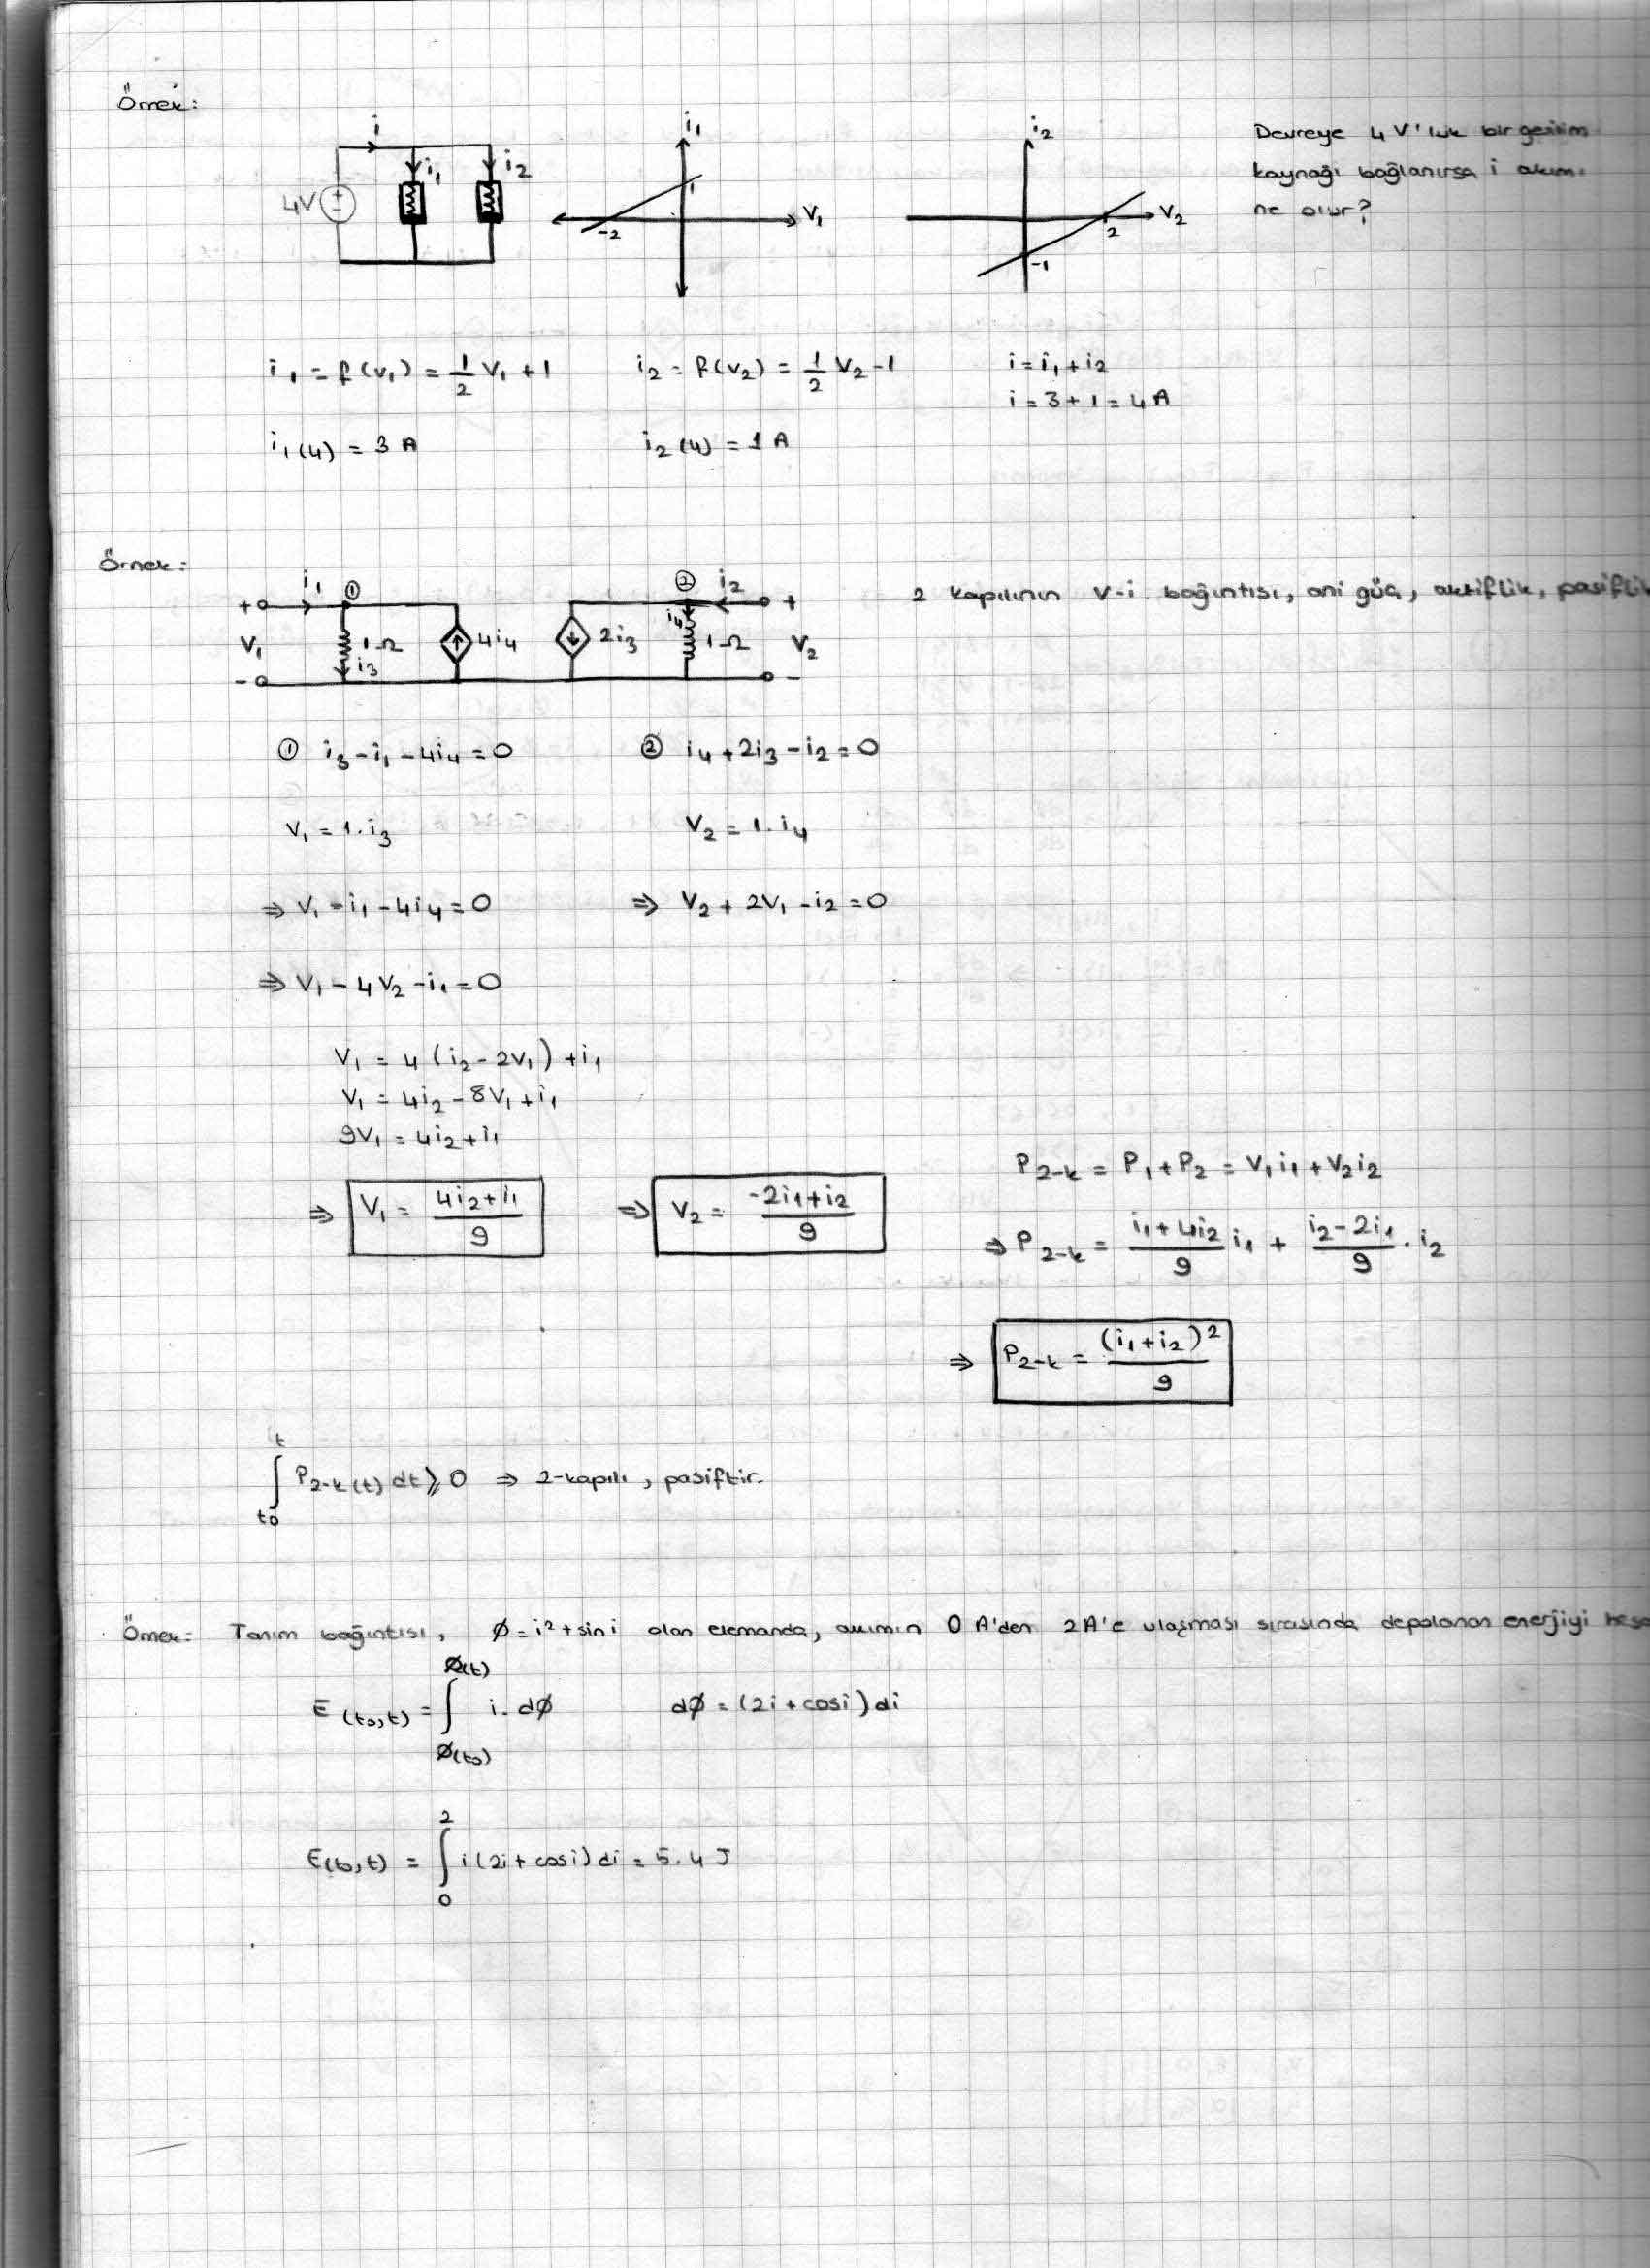 Örnek:
i
i₁
i₂
4V
+
-
i₁
1
-2
V₁
i₂
V₂
2
-1
Devreye 4 V'luk bir gerilim
kaynağı bağlanırsa i akımı
ne olur?
i₁ = f(v₁) = 1/2 V₁ + 1
i₂ = f(v₂) = 1/2 V₂ - 1
i = i₁ + i₂
i = 3 + 1 = 4 A
i₁(4) = 3 A
i₂(4) = 1 A
Örnek:
i₁
①
②
i₂
+
+
V₁
1Ω
i₃
4i₄
2i₃
i₄
1Ω
V₂
-
-
2 kapılının v-i bağıntısı, ani güç, aktiflik, pasiflik
① i₃ - i₁ - 4i₄ = 0
② i₄ + 2i₃ - i₂ = 0
V₁ = 1.i₃
V₂ = 1.i₄
⇒ V₁ - i₁ - 4i₄ = 0
⇒ V₂ + 2V₁ - i₂ = 0
⇒ V₁ - 4V₂ - i₁ = 0
V₁ = 4(i₂ - 2V₁) + i₁
V₁ = 4i₂ - 8V₁ + i₁
9V₁ = 4i₂ + i₁
⇒ V₁ = (4i₂ + i₁)/9
⇒ V₂ = (-2i₁ + i₂)/9
P₂₋ₖ = P₁ + P₂ = V₁i₁ + V₂i₂
⇒ P₂₋ₖ = (i₁ + 4i₂)/9 i₁ + (i₂ - 2i₁)/9 . i₂
⇒ P₂₋ₖ = (i₁ + i₂)²/9
∫ₜ₀ᵗ P₂₋ₖ(t) dt ≥ 0 ⇒ 2-kapılı, pasiftir.
Örnek: Tanım bağıntısı, Ø = i² + sin i olan elemanda, akımın 0 A'den 2A'e ulaşması sırasında depolanan enerjiyi
E(t₀,t) = ∫ Ø(t₀) Ø(t) i. dØ
dØ = (2i + cosi) di
E(t₀,t) = ∫₀² i(2i + cosi) di = 5.4 J